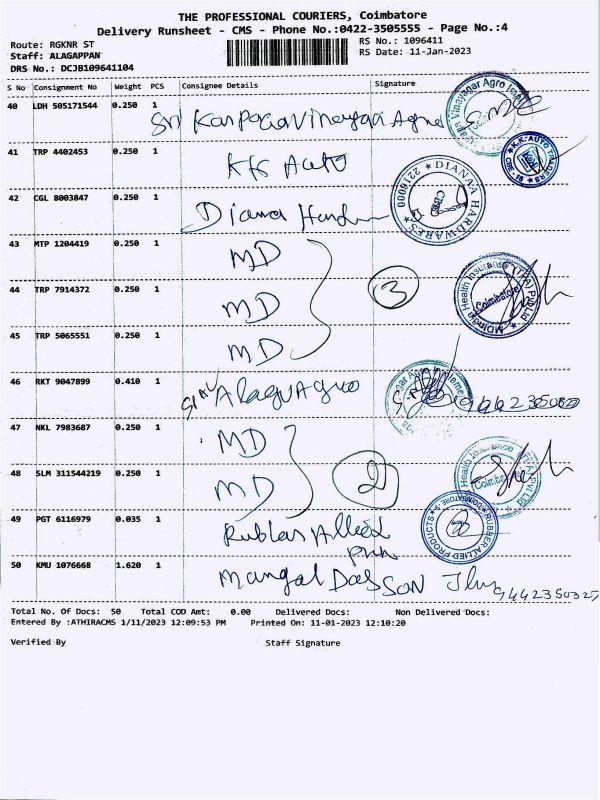 THE PROFESSIONAL COURIERS, Coimbatore
Delivery Runsheet - CMS - Phone No.:0422-3505555 - Page No.:4
Route: RGKNR ST
RS No.: 1096411
Staff: ALAGAPPAN
RS Date: 11-Jan-2023
DRS No.: DCJB109641104
S No Consignment No Weight PCS Consignee Details Signature
40 LDH 505171544 0.250 1 Sri Karpaga Vinayaga Agro
Vinayagar Agro
41 TRP 4402453 0.250 1 KK Auto
K.K. AUTO
CBE - 18
42 CGL 8003847 0.250 1 Diana
DIANA HARDWARES * 2216000 *
CBE
43 MTP 1204419 0.250 1 MD
44 TRP 7914372 0.250 1 MD 3
MDIndia Health Insurance (TPA) Pvt Ltd
Coimbatore
45 TRP 5065551 0.250 1 MD
46 RKT 9047899 0.410 1 Alagu Agro
47 NKL 7983687 0.250 1 MD
48 SLM 311544219 0.250 1 MD 2
Health Insurance (TPA) Pvt Ltd
49 PGT 6116979 0.035 1 Rubber Allied
RUBBER ALLIED PRODUCTS * COIMBATORE-9 *
50 KMU 1076668 1.620 1 Mangal Das SON
9442350325
Total No. Of Docs: 50 Total COD Amt: 0.00 Delivered Docs: Non Delivered Docs:
Entered By :ATHIRACMS 1/11/2023 12:09:53 PM Printed On: 11-01-2023 12:10:20
Verified By Staff Signature